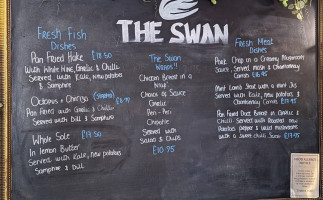 THE SWAN
Fresh Fish
Dishes
Pan Fried Hake £18.50
With White Wine, Garlic & Chilli
Served with Kale, new potatoes
& Samphire
Octopus + Chorizo (starter)
Pan Fried with Garlic & Chilli
Served with Dill & Samphire
Whole Sole £17.50
In lemon Butter
Served with Kale, new potatoes
Samphire & Dill
The Swan
Chicken Breast in a
Choice of Sauce
Garlic
Peri-Peri
Chipotle
Served with
Salad & Chips
£10.95
Fresh Meat
Dishes
Pork Chop in a Creamy Mushroom
Sauce, Served mash & Chantenay
Carrots £16.95
Served with Kale, new potatoes
& Chantenay Carrots £17.95
Pan Fried Duck Breast in Garlic &
Chilli Served with Roasted new
Potatoes, pepper & wild mushrooms
with a sweet chilli Sauce £17.95